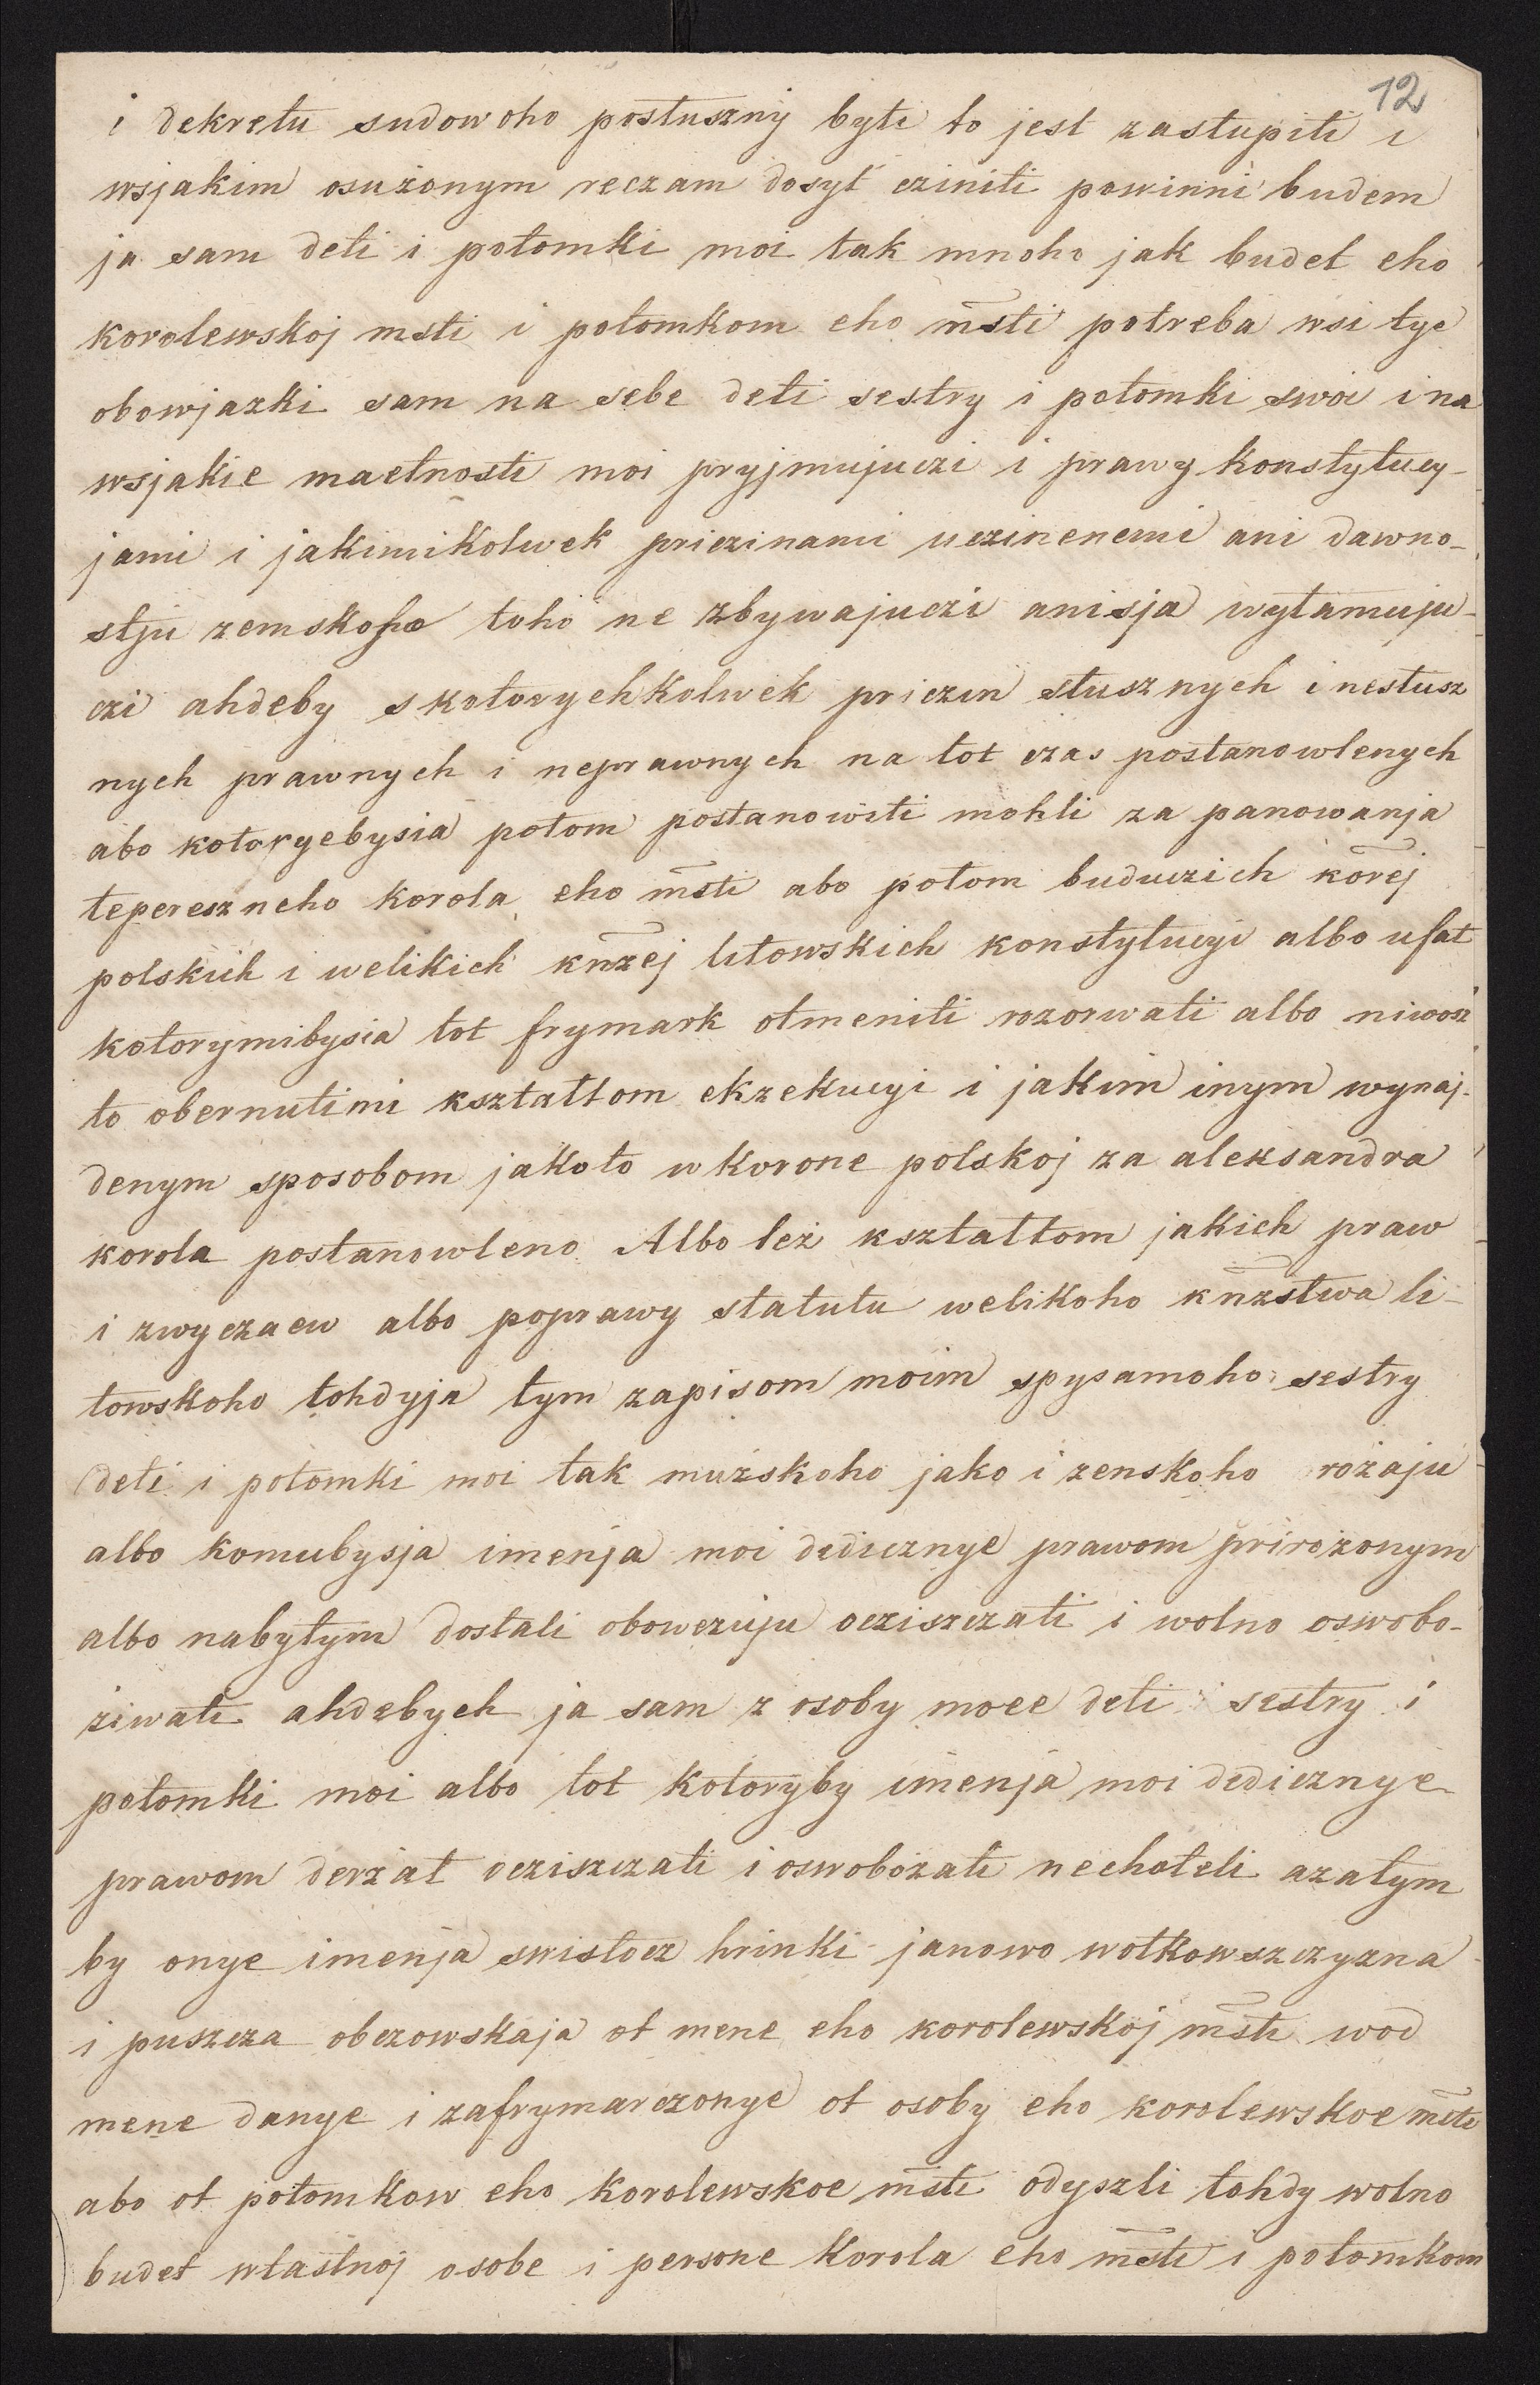 12
i dekretu sudowoho posłuszny byti to jest zastupiti i
wsjakim osużonym reczam dosyt cziniti powinni budem
ja sam deti i potomki moi tak mnoho jak budet eho
korolewskoj msti i potomkom eho msti potreba wsi tye
obowjazki sam na sebe deti sestry i potomki swoi i na
wsjakie maetnosti moi pryjmujuczi i prawy konstytucy-
jami i jakimikolwek priczinami uczinenemi ani dawno-
stju zemskoho toho ne zbywajuczi anisja wyłamuju-
czi ahdeby s kotorychkolwek priczin słusznych i nesłusz
nych prawnych i neprawnych na tot czas postanowlenych
abo kotoryebysia potom postanowiti mohli za panowanja
tepereszneho korola eho msti abo potom buduczich korej
polskich i welikich knzej litowskich konstytucyi albo ufał
kotorymibysia tot frymark otmeniti rozorwati albo niwosz
to obernutimi kształtom ekzekucyi i jakim inym wynaj-
denym sposobom jakoto w korone polskoj za aleksandra
korola postanowleno Albo też kształtom jakich praw
i zwyczaew albo poprawy statutu welikoho knzstwa li-
towskoho tohdyja tym zapisom moim spysamoho sestry
deti i potomki moi tak mużskoho jako i zenskoho rożaju
albo komubysja imenja moi dedicznye prawom prirożonym
albo nabytym dostali obowezuju ocziszczati i wolno oswobo-
żiwati ahdebych ja sam z osoby moee deti i sestry i
potomki moi albo tot kotoryby imenja moi dedicznye
prawom derżał ocziszczati i oswobożati nechoteli azatym
by onye imenja swisłocz hrinki janowo wołkowszczyzna
i puszcza obczowskaja ot mene eho korolewskoj msti wod
mene danye i zafrymarczonye ot osoby eho korolewskoe msti
abo ot potomkow eho korolewskoe msti odyszli tohdy wolno
budet własnoj osobe i persone korola eho msti i potomkom